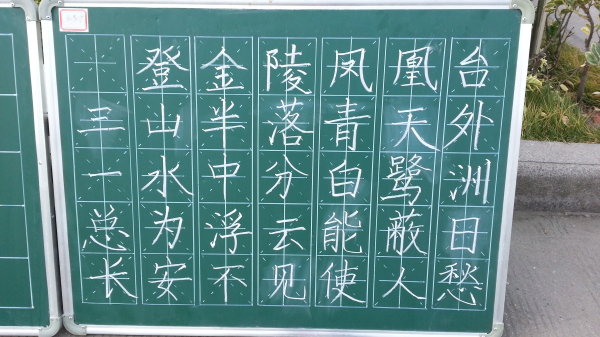 登金陵凤凰台
三山半落青天外
一水中分白鹭洲
总为浮云能蔽日
长安不见使人愁